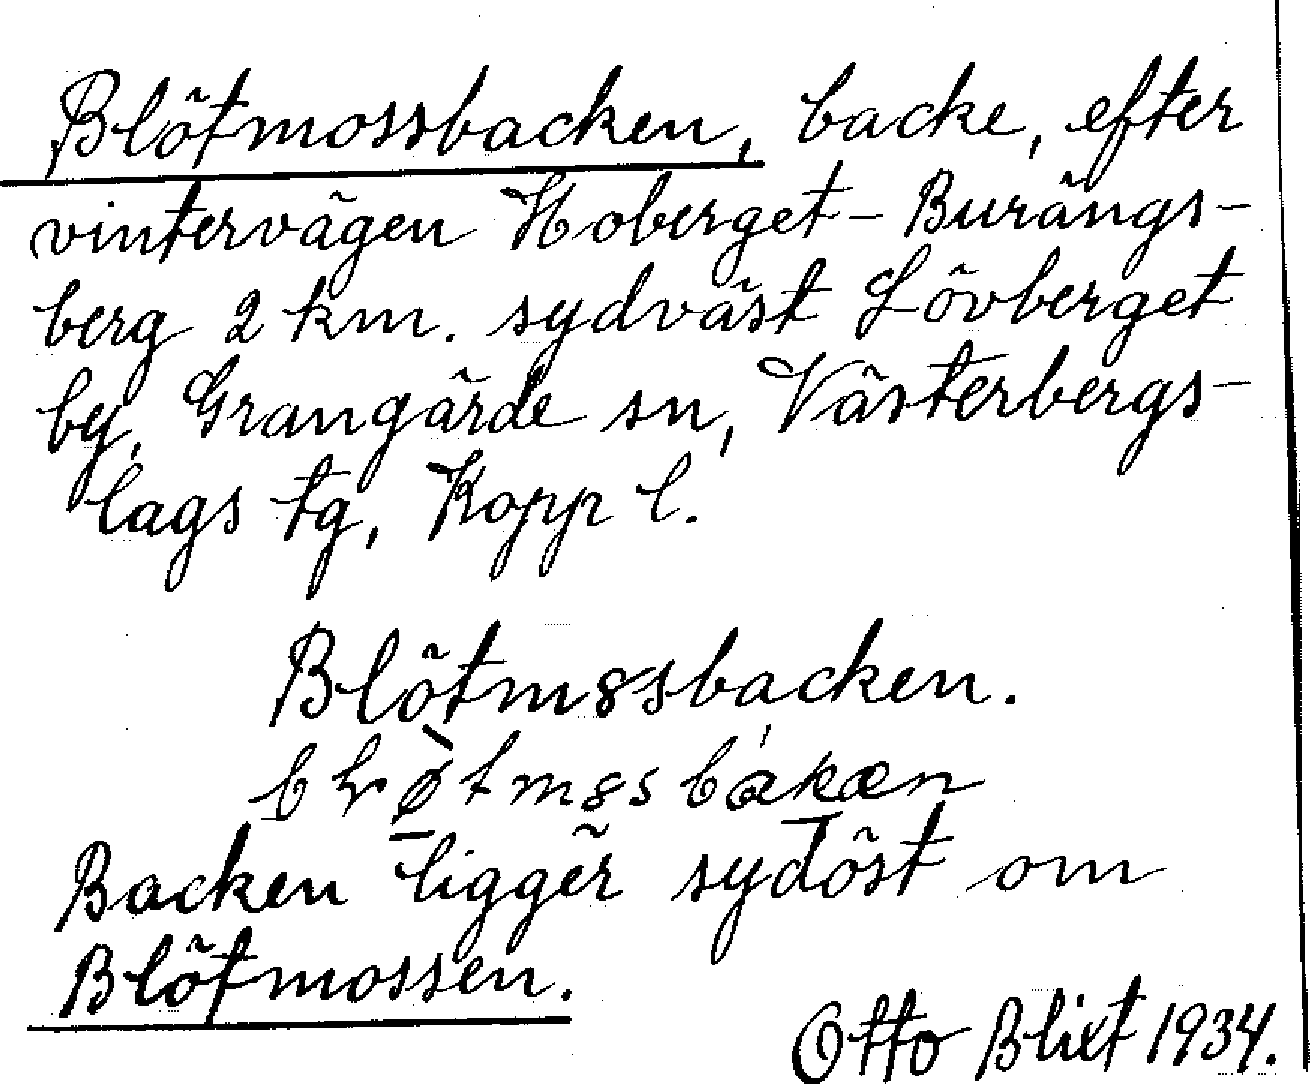 Blötmossbacken, backe, efter
vintervägen Hoberget - Burängs-
berg 2 km. sydväst Lövberget
by, Grangärde sn, Västerbergs-
lags tg, Kopp l.
Blötm8sbacken.
Backen ligger sydöst om
Blötmossen.
Otto Blixt 1934.